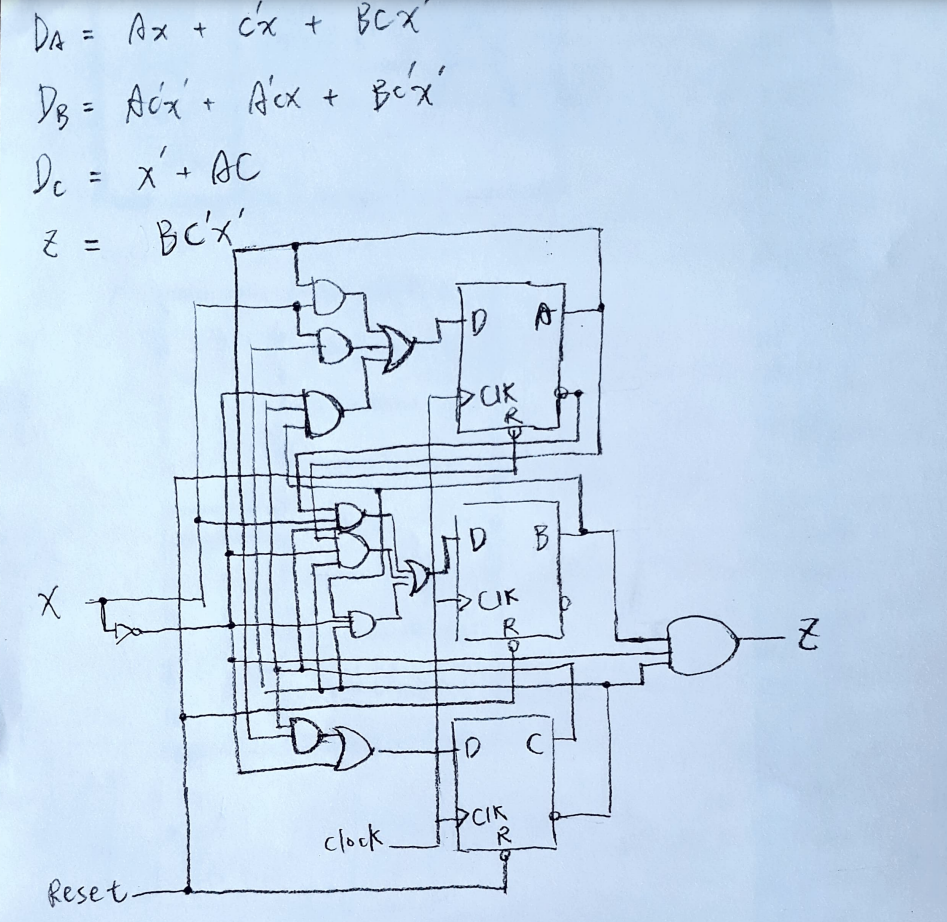 D_A = Ax + C'x + BCx'
D_B = AC'x' + A'Cx + BC'x'
D_C = x' + AC
Z = BC'x'
D A
CLK
R
D B
X
CLK
R
Z
D C
CLK
R
Clock
Reset